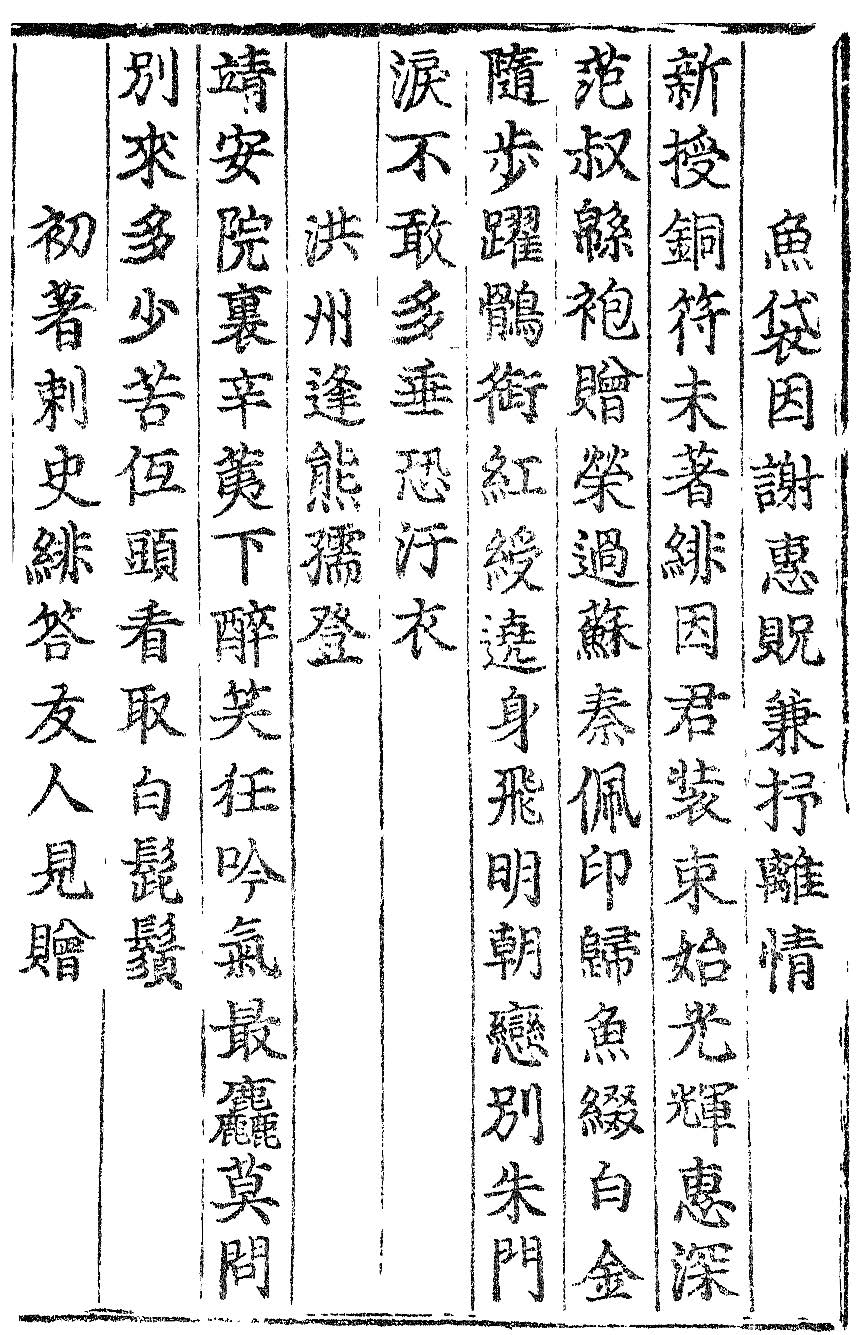 魚袋因謝惠貺兼抒離情
新授銅符未著緋因君裝束始光輝惠深
范叔綈袍贈榮過蘇秦佩印歸魚綴白金
隨步躍鶻銜紅綬遶身飛明朝戀別朱門
淚不敢多垂恐汙衣
洪州逢熊孺登
靖安院裏辛荑下醉笑狂吟氣最麤莫問
別來多少苦低頭看取白髭鬚
初著刺史緋答友人見贈